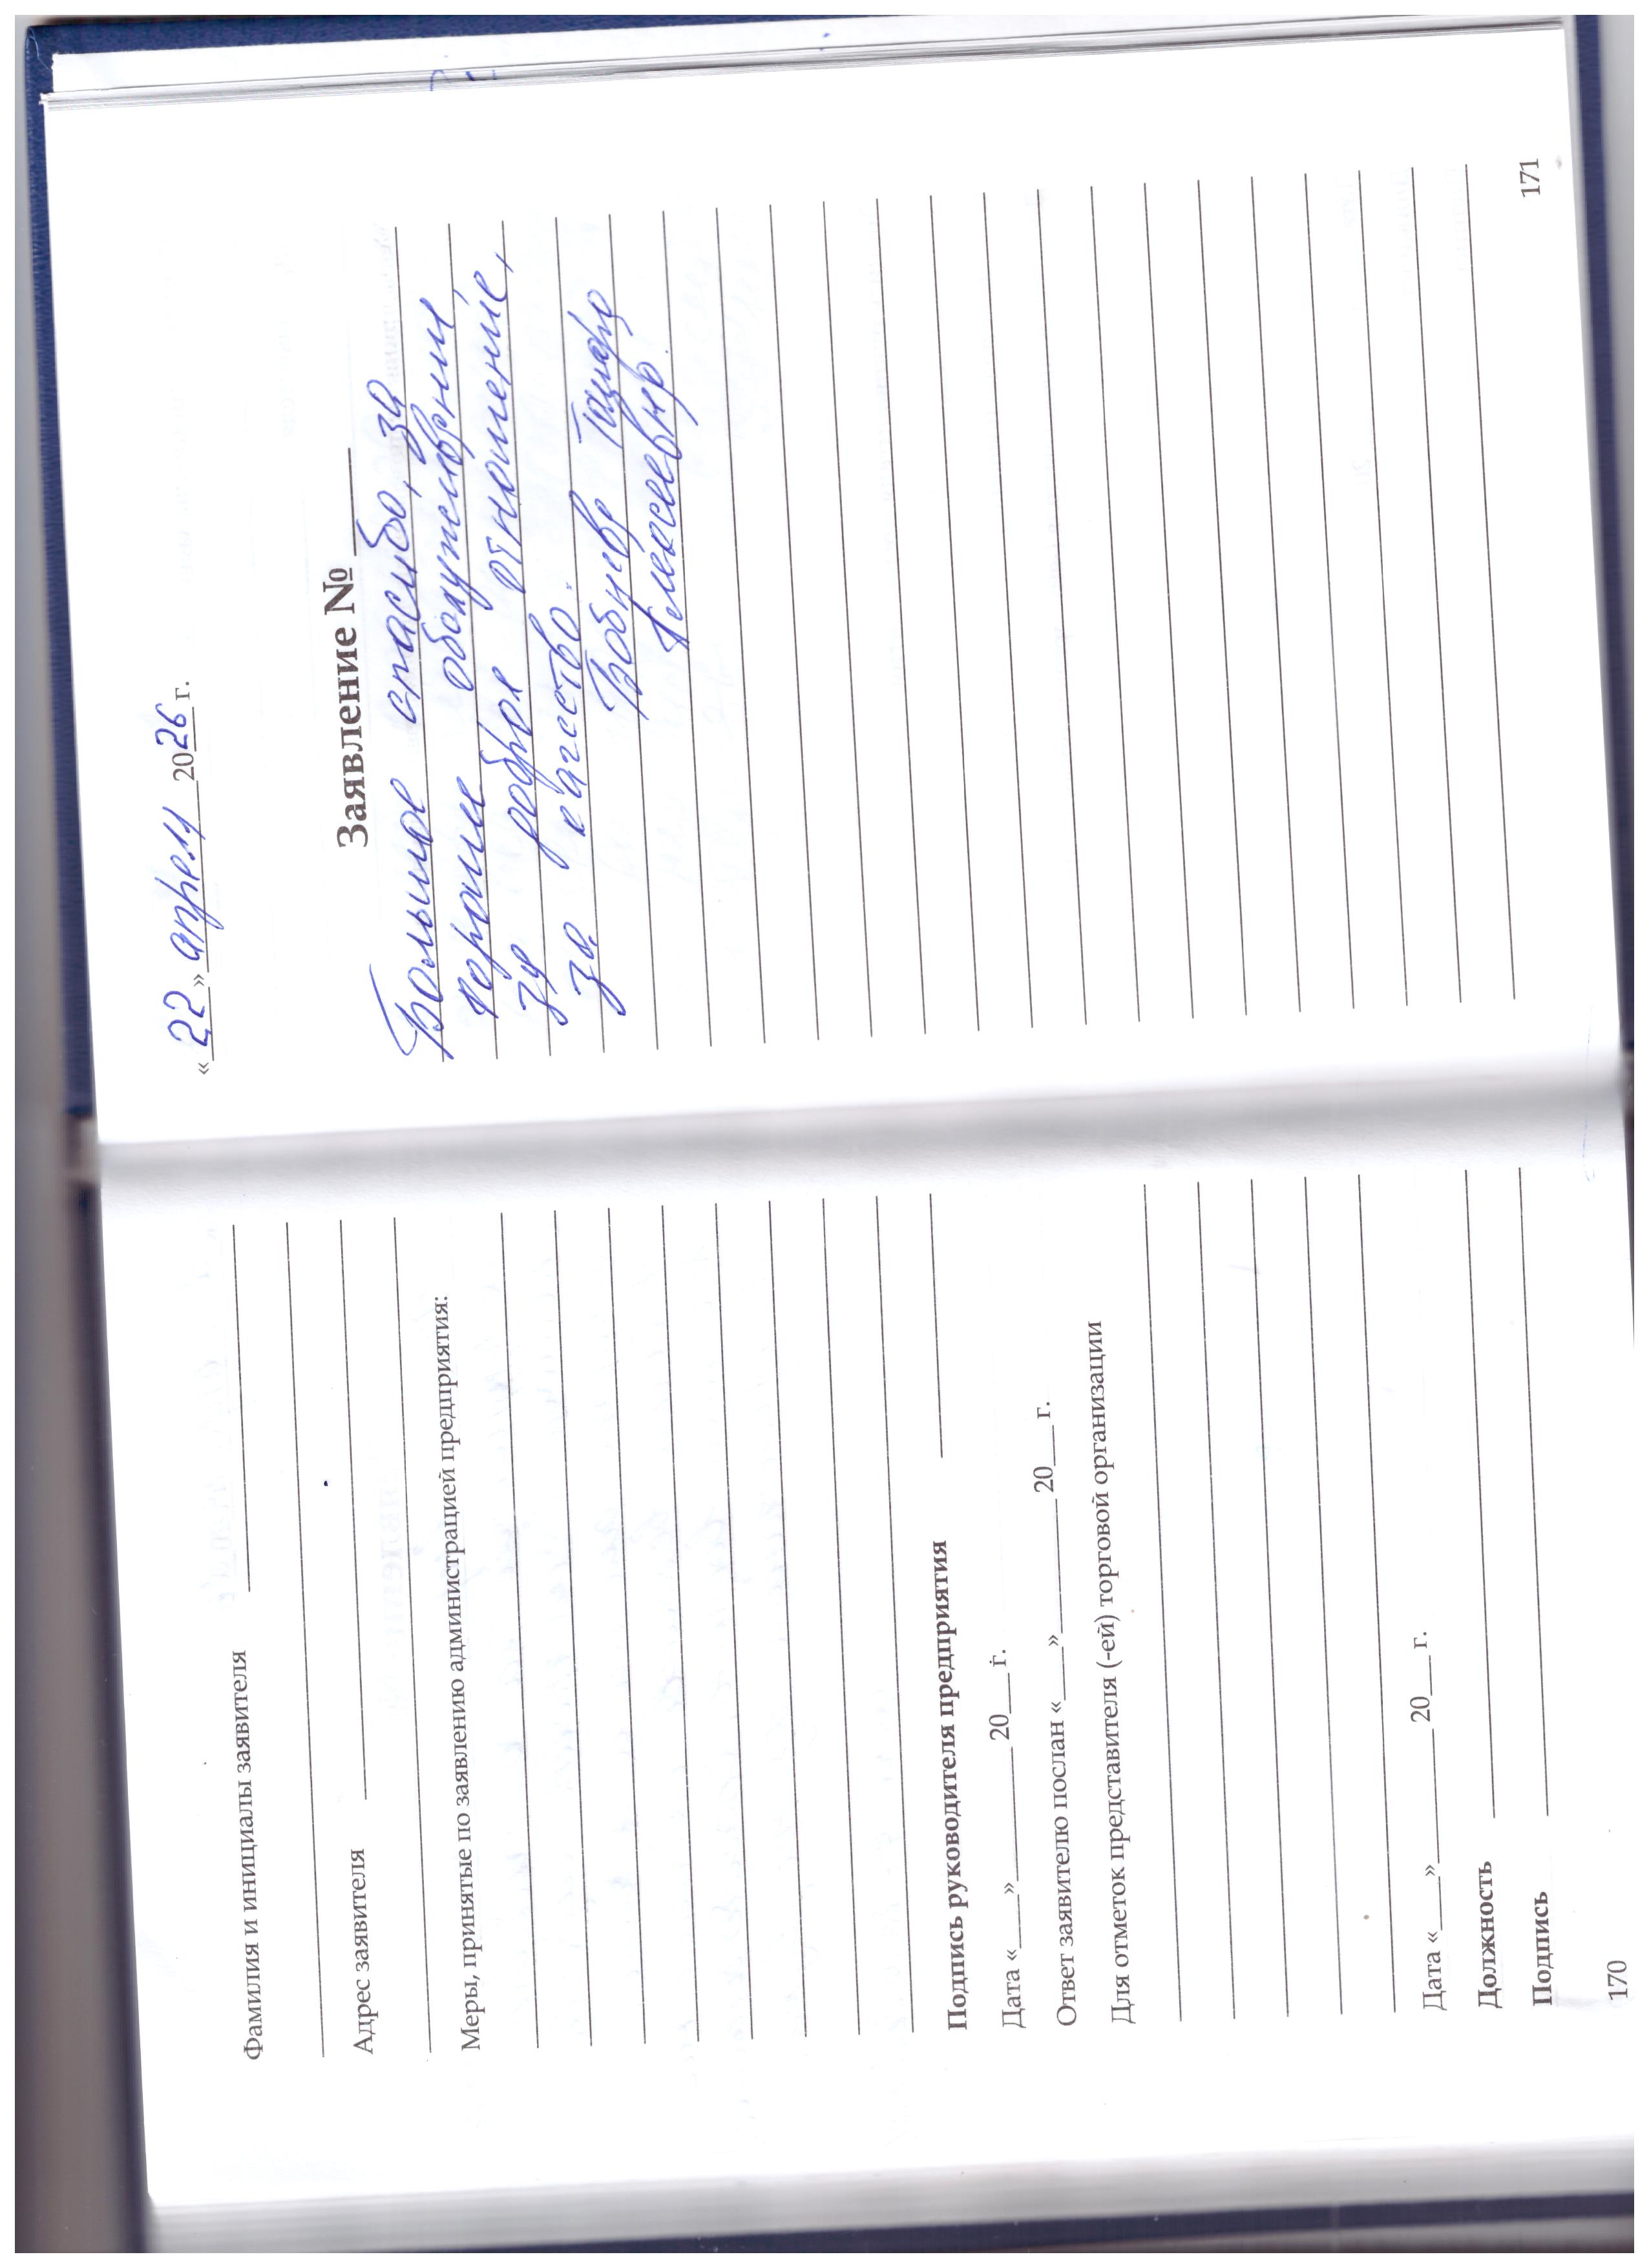 Фамилия и инициалы заявителя
Адрес заявителя
Меры, принятые по заявлению администрацией предприятия:
Подпись руководителя предприятия
Дата «___»__________20___г.
Ответ заявителю послан «___»__________20___г.
Для отметок представителя (-ей) торговой организации
Дата «___»__________20___г.
Должность
Подпись
170
«22» апреля 2026 г.
Заявление №
Большое спасибо, за
хорошее обслуживание,
за доброе отношение,
за качество.
Бобнева
Алексеевна.
171